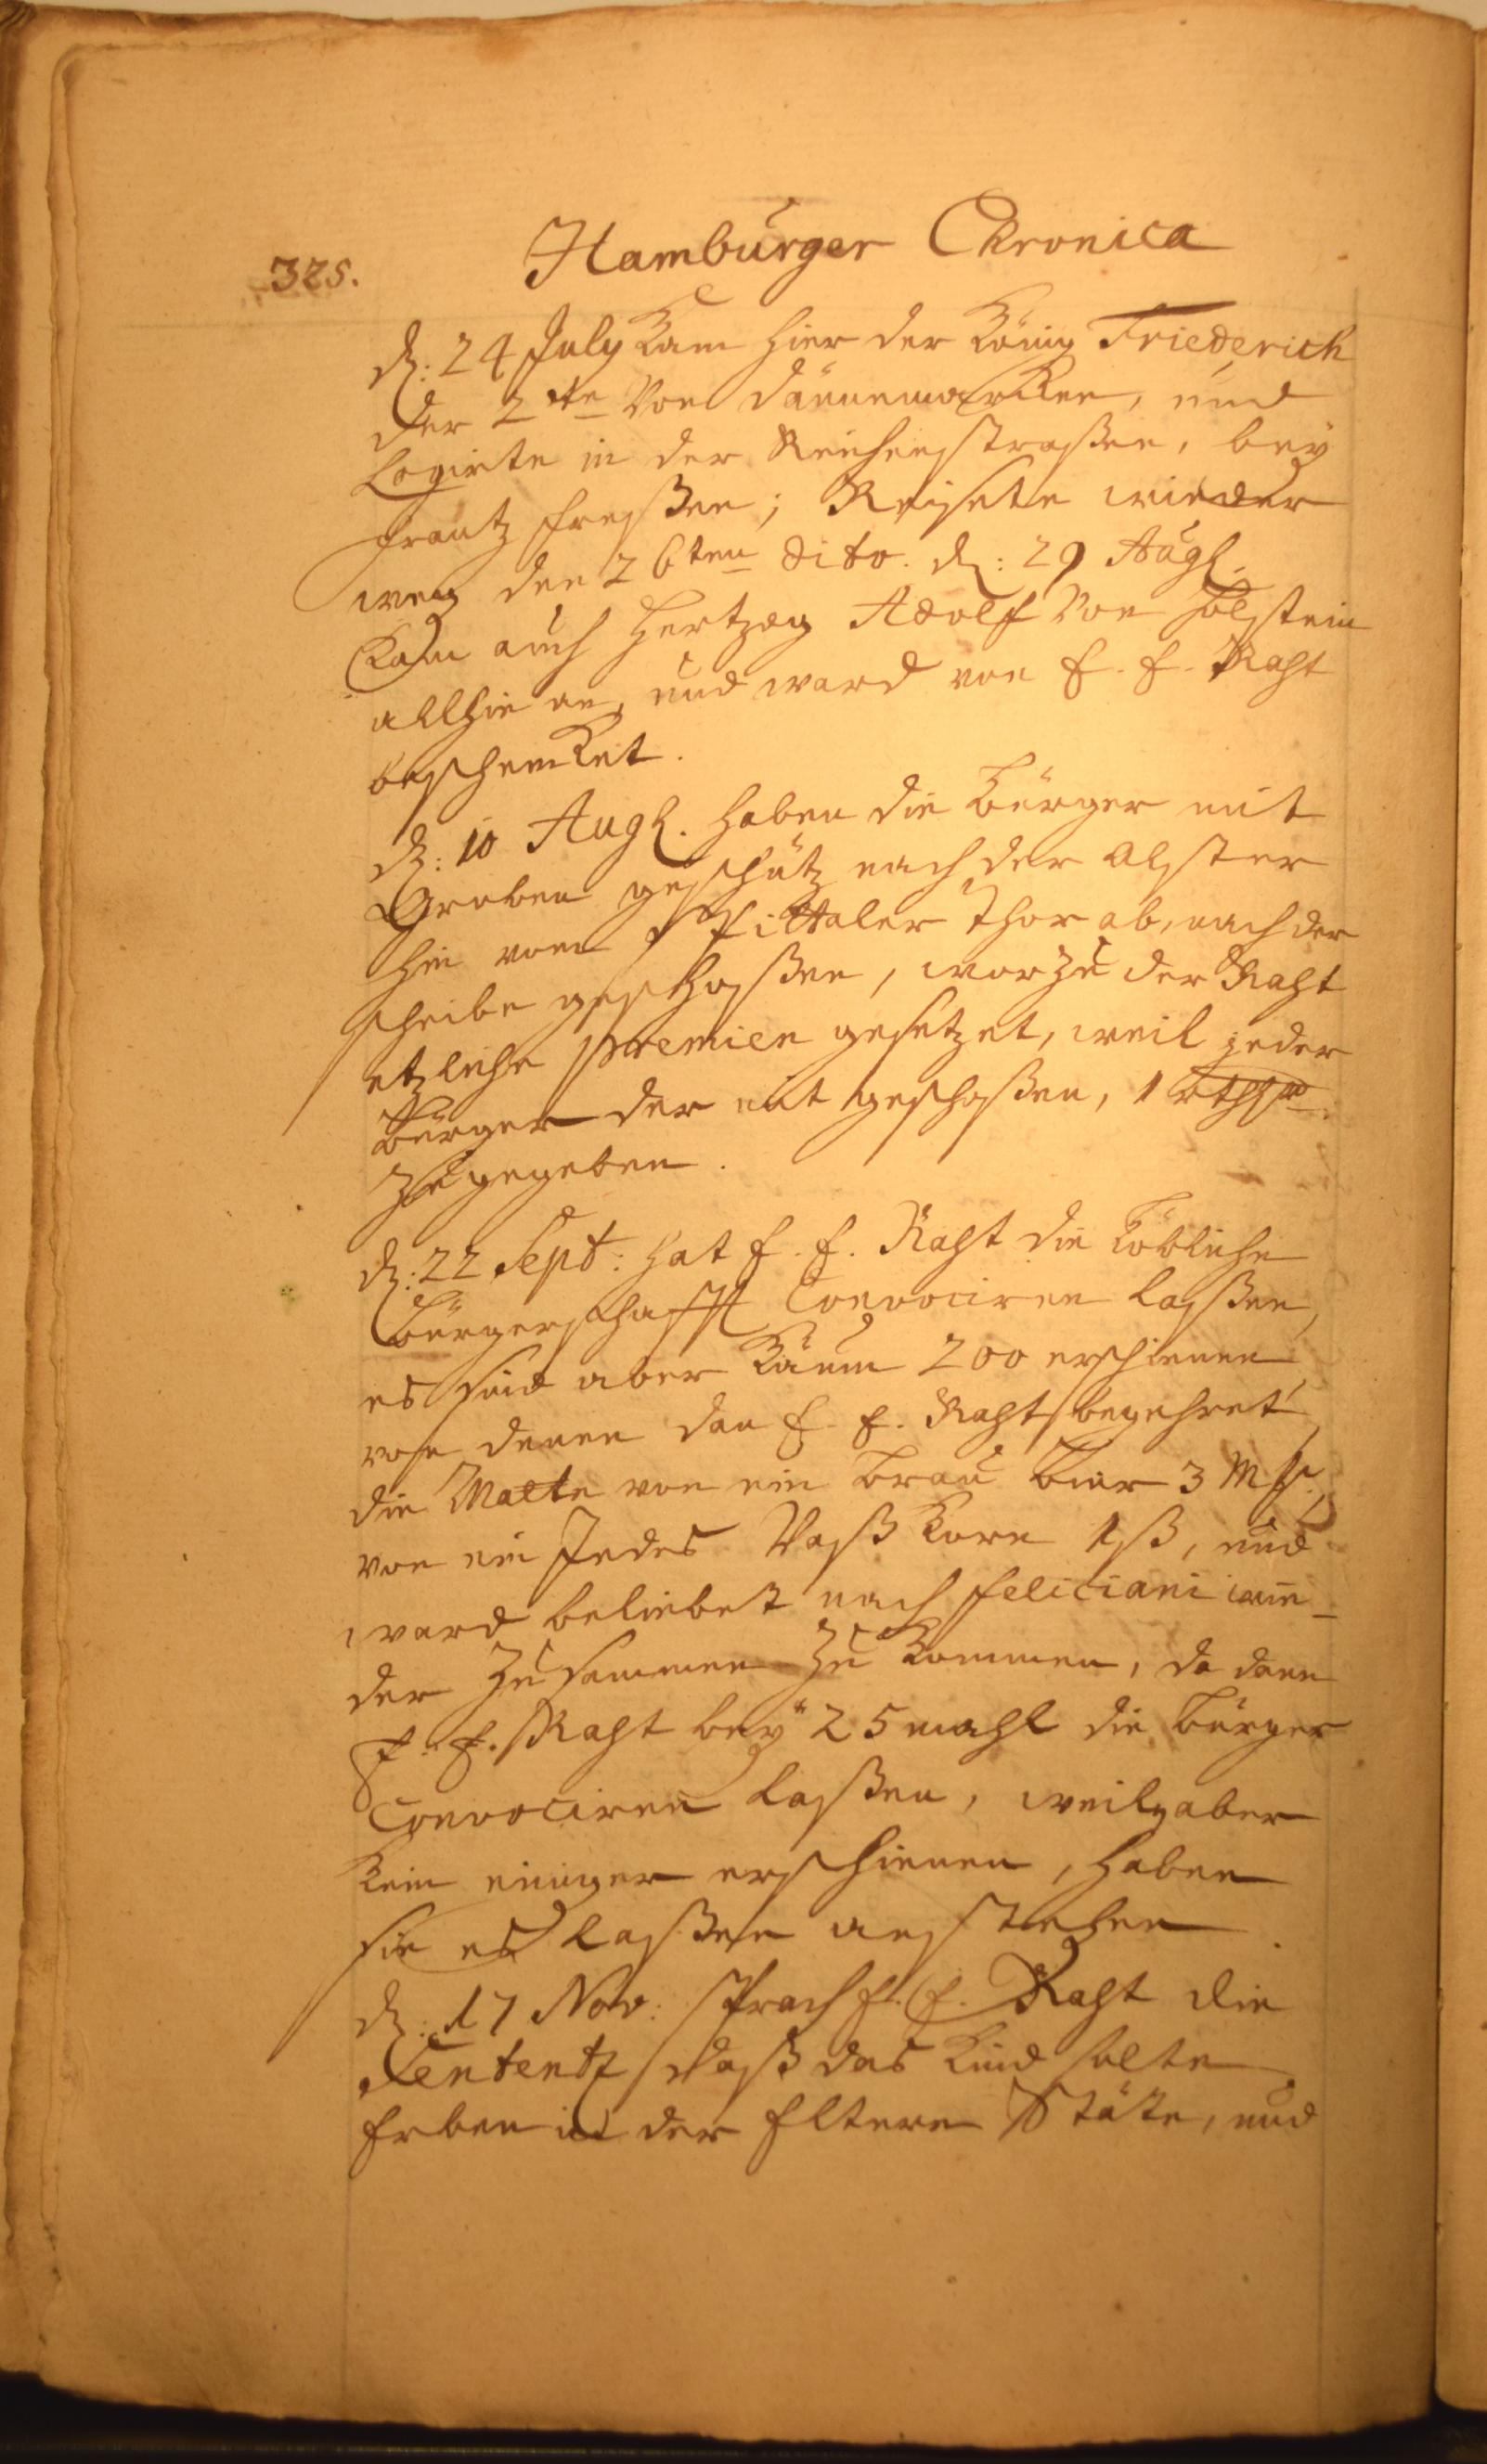 Hamburger Chronica
325.
d: 24 July Kam hier der König Friederich
der 2te Von Dännemarcken, und
Logirte in der Reichenstraßen, bey
Frantz ; Reisete wieder
weg den 26ten dito. d: 29 Augs.
Kam auch Hertzog Adolf Von Holstein
allhie an, und ward von E. E. Raht
beschencket.
d: 10 Augs. haben die Bürger mit
Groben geschütz nach der Alster
hin vom Spittaler Thor ab, nach der
scheibe geschoßen, worzu der Raht
etzliche premien gesetzet, weil jeder
Bürger der mit geschoßen, 1 rthlr
zu gegeben.
d: 22 Sept: hat E. E. Raht die Löbliche
Bürgerschafft Convociren laßen,
es sind aber Kaum 200 erschienen,
von denen dan E. E. Raht begehret
die Matte von ein Brau Bier 3 Mß,
von ein Jedes Vaß Korn 1 ß, und
ward beliebet nach Feliciani wie-
der zu sammen zu Kommen, da dann
E. E. Raht bey 25 mahl die Bürger
Convociren laßen, weil aber
Kein einiger erschienen, haben
sie es laßen anstehen.
d: 17 Nov: sprach E. E. Raht die
Sententz, daß das Kind solte
Erben in der Eltern Stäte, und